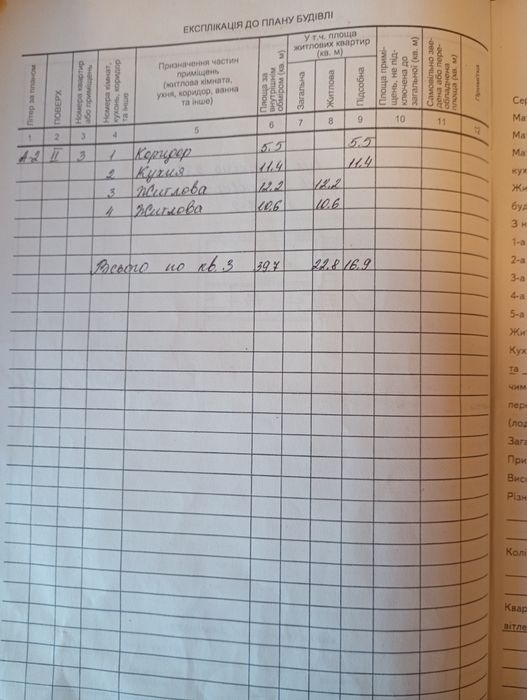 ЕКСПЛІКАЦІЯ ДО ПЛАНУ БУДІВЛІ
Літер за планом
ПОВЕРХ
Номера квартир або приміщень
Номера кімнат, кухонь, коридор та інше
Призначення частин приміщень (житлова кімната, кухня, коридор, ванна та інше)
Площа за внутрішнім обміром (кв. м)
У т.ч. площа житлових квартир (кв. м)
Загальна
Житлова
Підсобна
Площа приміщень, не підключена до загальної (кв. м)
Самовільно зведена або переобладнена площа (кв. м)
Примітки
1 2 3 4 5 6 7 8 9 10 11 12
А-2 II 3 1 Коридор 5.5 5.5
2 Кухня 11.4 11.4
3 Житлова 12.2 12.2
4 Житлова 10.6 10.6
Всього по кв. 3 39.7 22.8 16.9
Се
Ма
Ма
Ма
кух
Жи
буд
З н
1-а
2-а
3-а
4-а
5-а
Жи
Кух
та
чим
пер
(лод
Зага
При
Висо
Різн
Колі
Квар
вітле